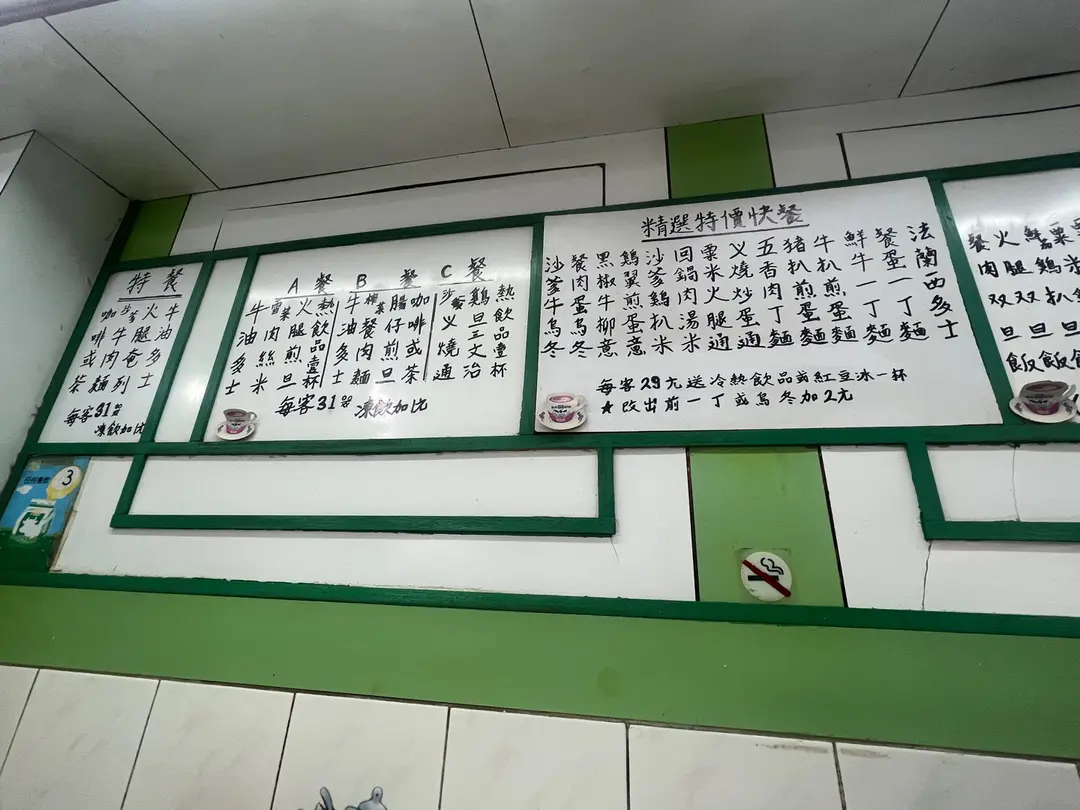 特餐
牛油多士
火腿奄列
沙爹牛肉麵
咖啡或茶
每客31
凍飲加
A餐
牛油多士
雪菜肉絲米
火腿煎旦
熱飲品壹杯
B餐
牛油多士
榨菜餐肉麵
腸仔煎旦
咖啡或茶
C餐
沙爹叉燒通
鷄旦三文治
熱飲品壹杯
每客31
凍飲加
精選特價快餐
沙爹牛烏冬
餐肉蛋烏冬
黑椒牛柳意
鷄翼煎蛋意
沙爹鷄扒米
回鍋肉湯米
粟米火腿通
叉燒炒蛋通
五香肉丁麵
豬扒煎蛋麵
牛扒煎蛋麵
鮮牛一丁麵
餐蛋一丁麵
法蘭西多士
每客29元送冷熱飲品或紅豆冰一杯
★改出前一丁或烏冬加2元
餐肉双旦飯
火腿双旦飯
3